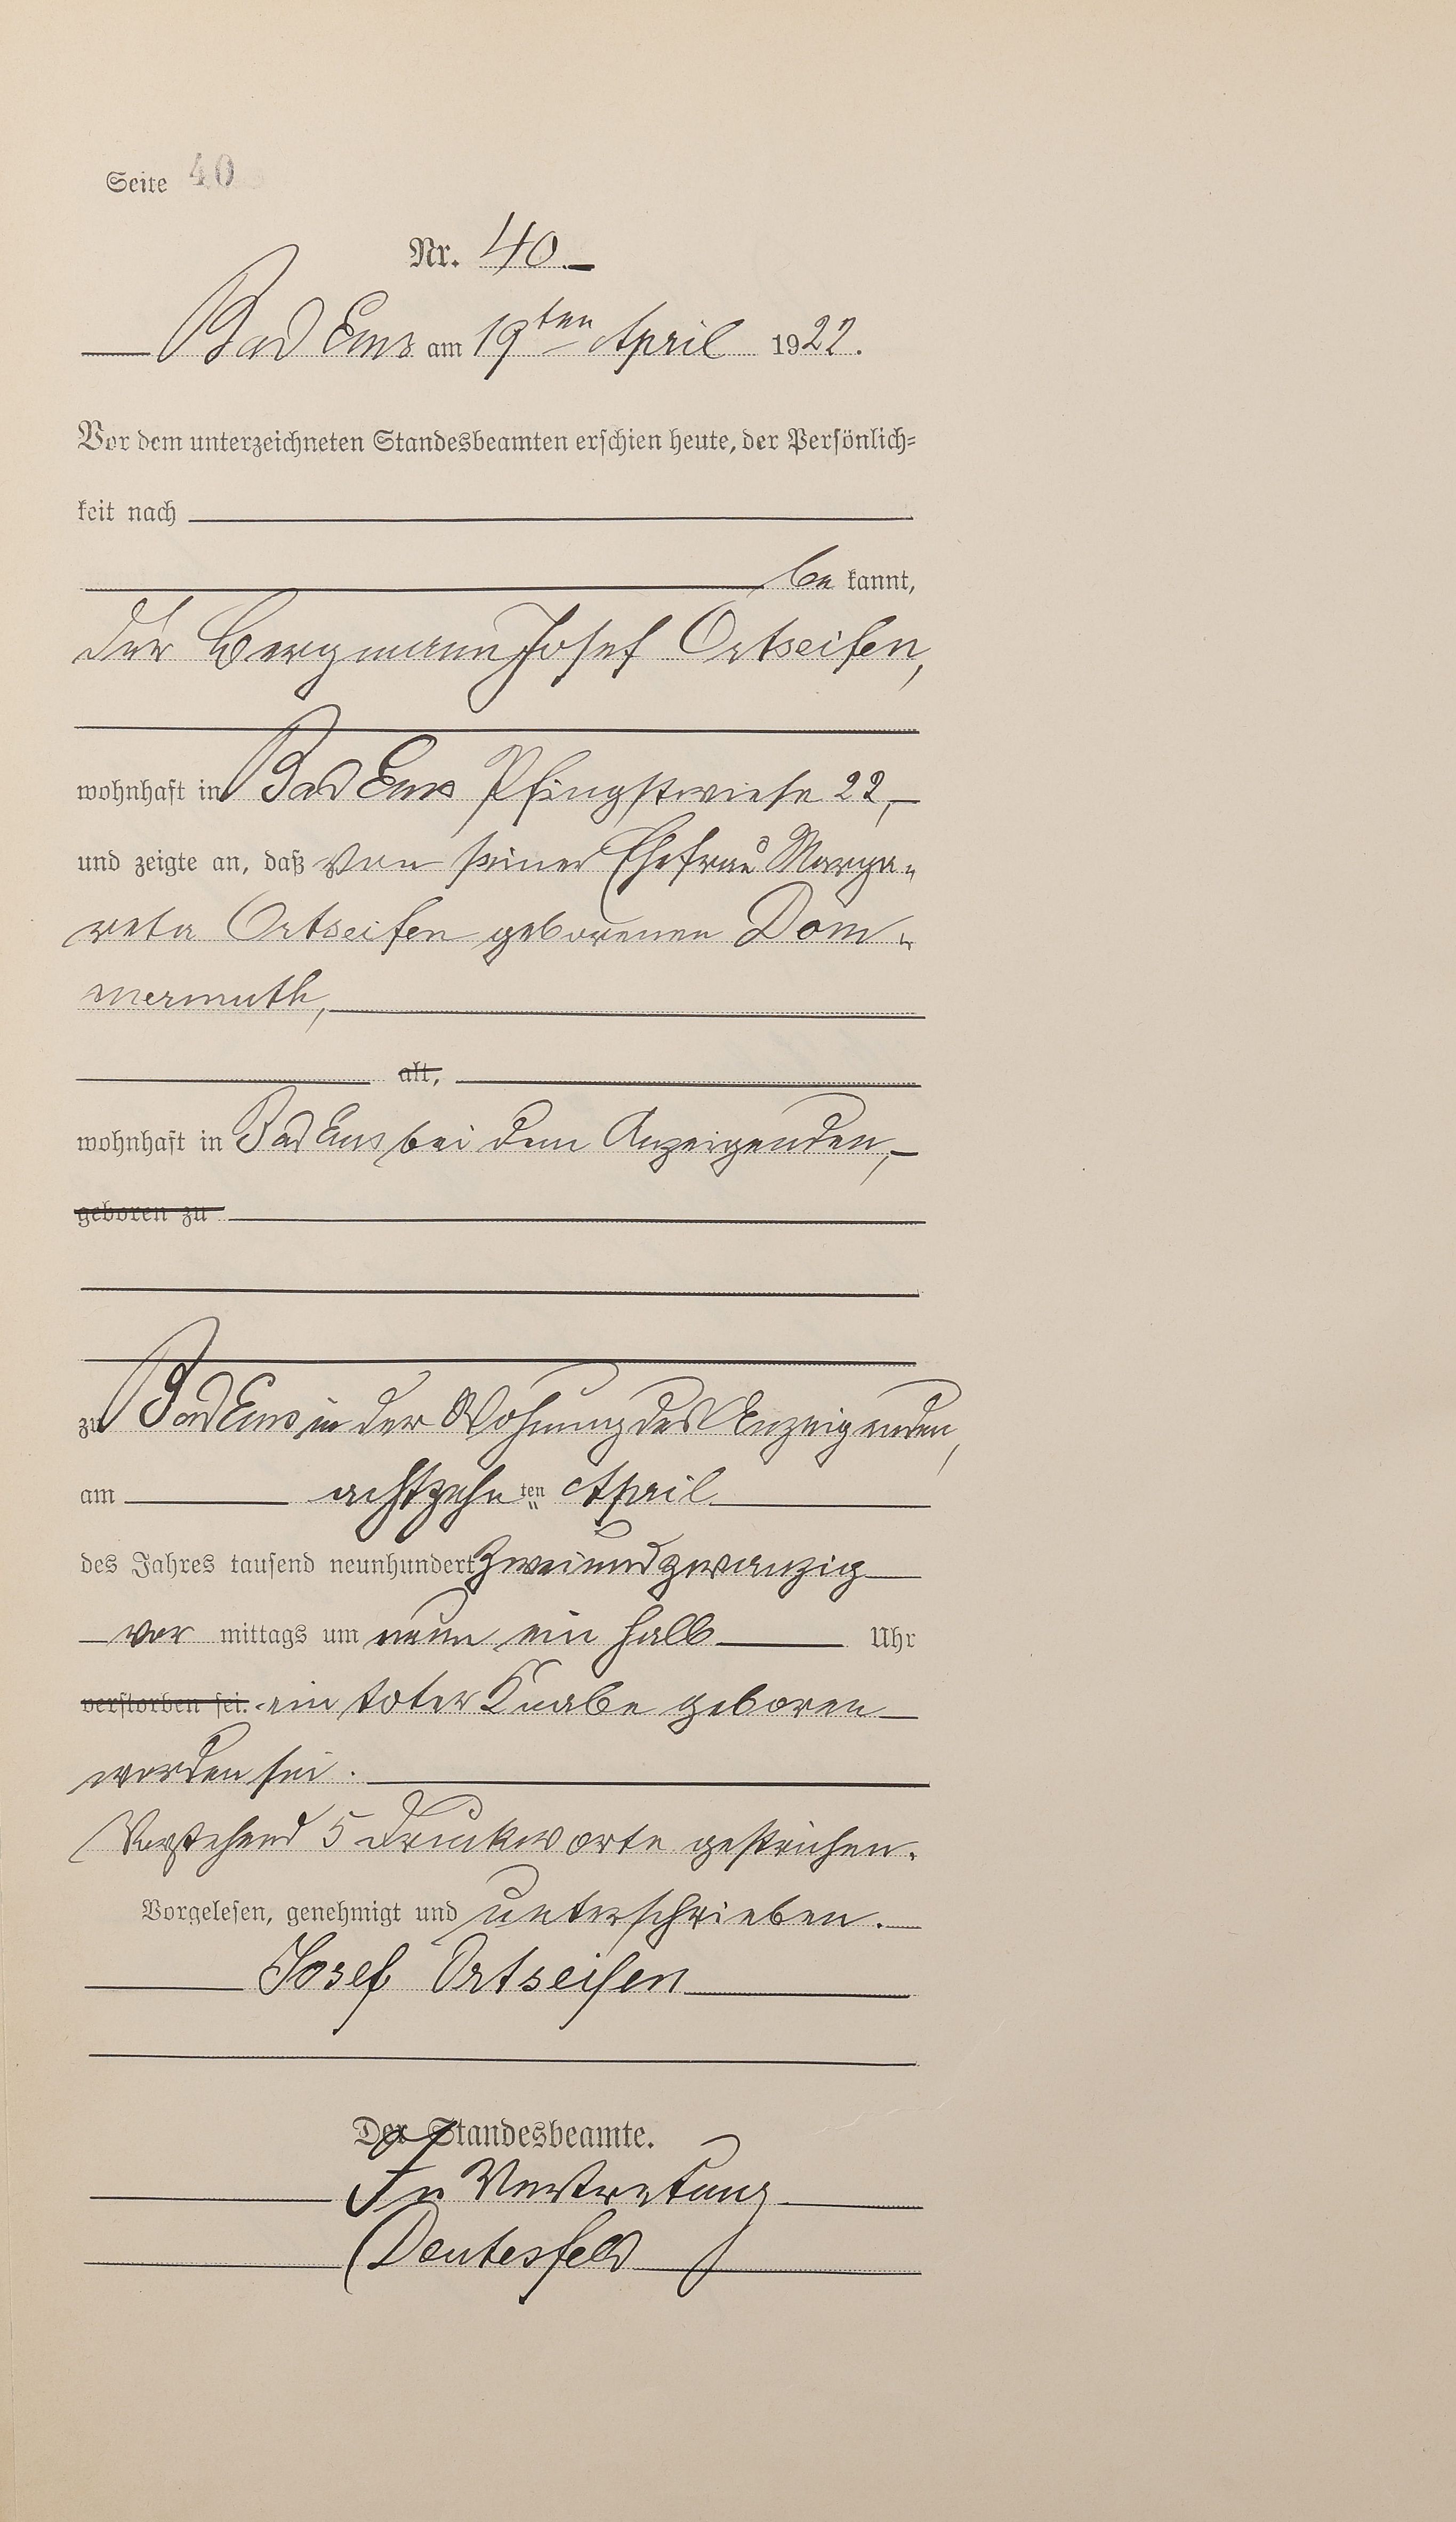 Seite 40
Nr. 40.
Bad Ems am 19ten April 1922.
Vor dem unterzeichneten Standesbeamten erschien heute, der Persönlich=
keit nach
be kannt,
der Bergmann Josef Ortseifen,
wohnhaft in Bad Ems Pfingstwiese 22,
und zeigte an, daß von seiner Ehefrau Marga-
reta Ortseifen geborenen Dom-
mermuth,
alt,
wohnhaft in Bad Ems bei dem Anzeigenden,
geboren zu
zu Bad Ems in der Wohnung des Anzeigenden,
am achtzehnten April
des Jahres tausend neunhundert zweiundzwanzig
vor mittags um neun ein halb Uhr
verstorben sei. ein toter Knabe geboren
worden sei.
Vorstehend 5 Druckworte gestrichen.
Vorgelesen, genehmigt und unterschrieben.
Josef Ortseifen
Der Standesbeamte.
In Vertretung
Deutesfeld